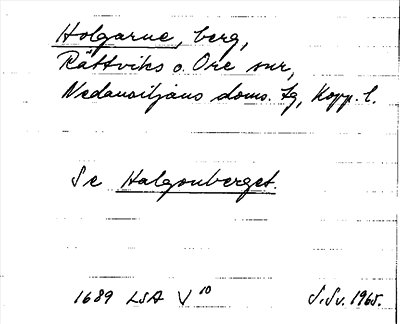 Holgarne, berg,
Rättviks o. Ore snr,
Nedansiljans doms. tg, Kopp. l.
Se Halgonberget.
1689 LSA V 10
S.Sv. 1965.